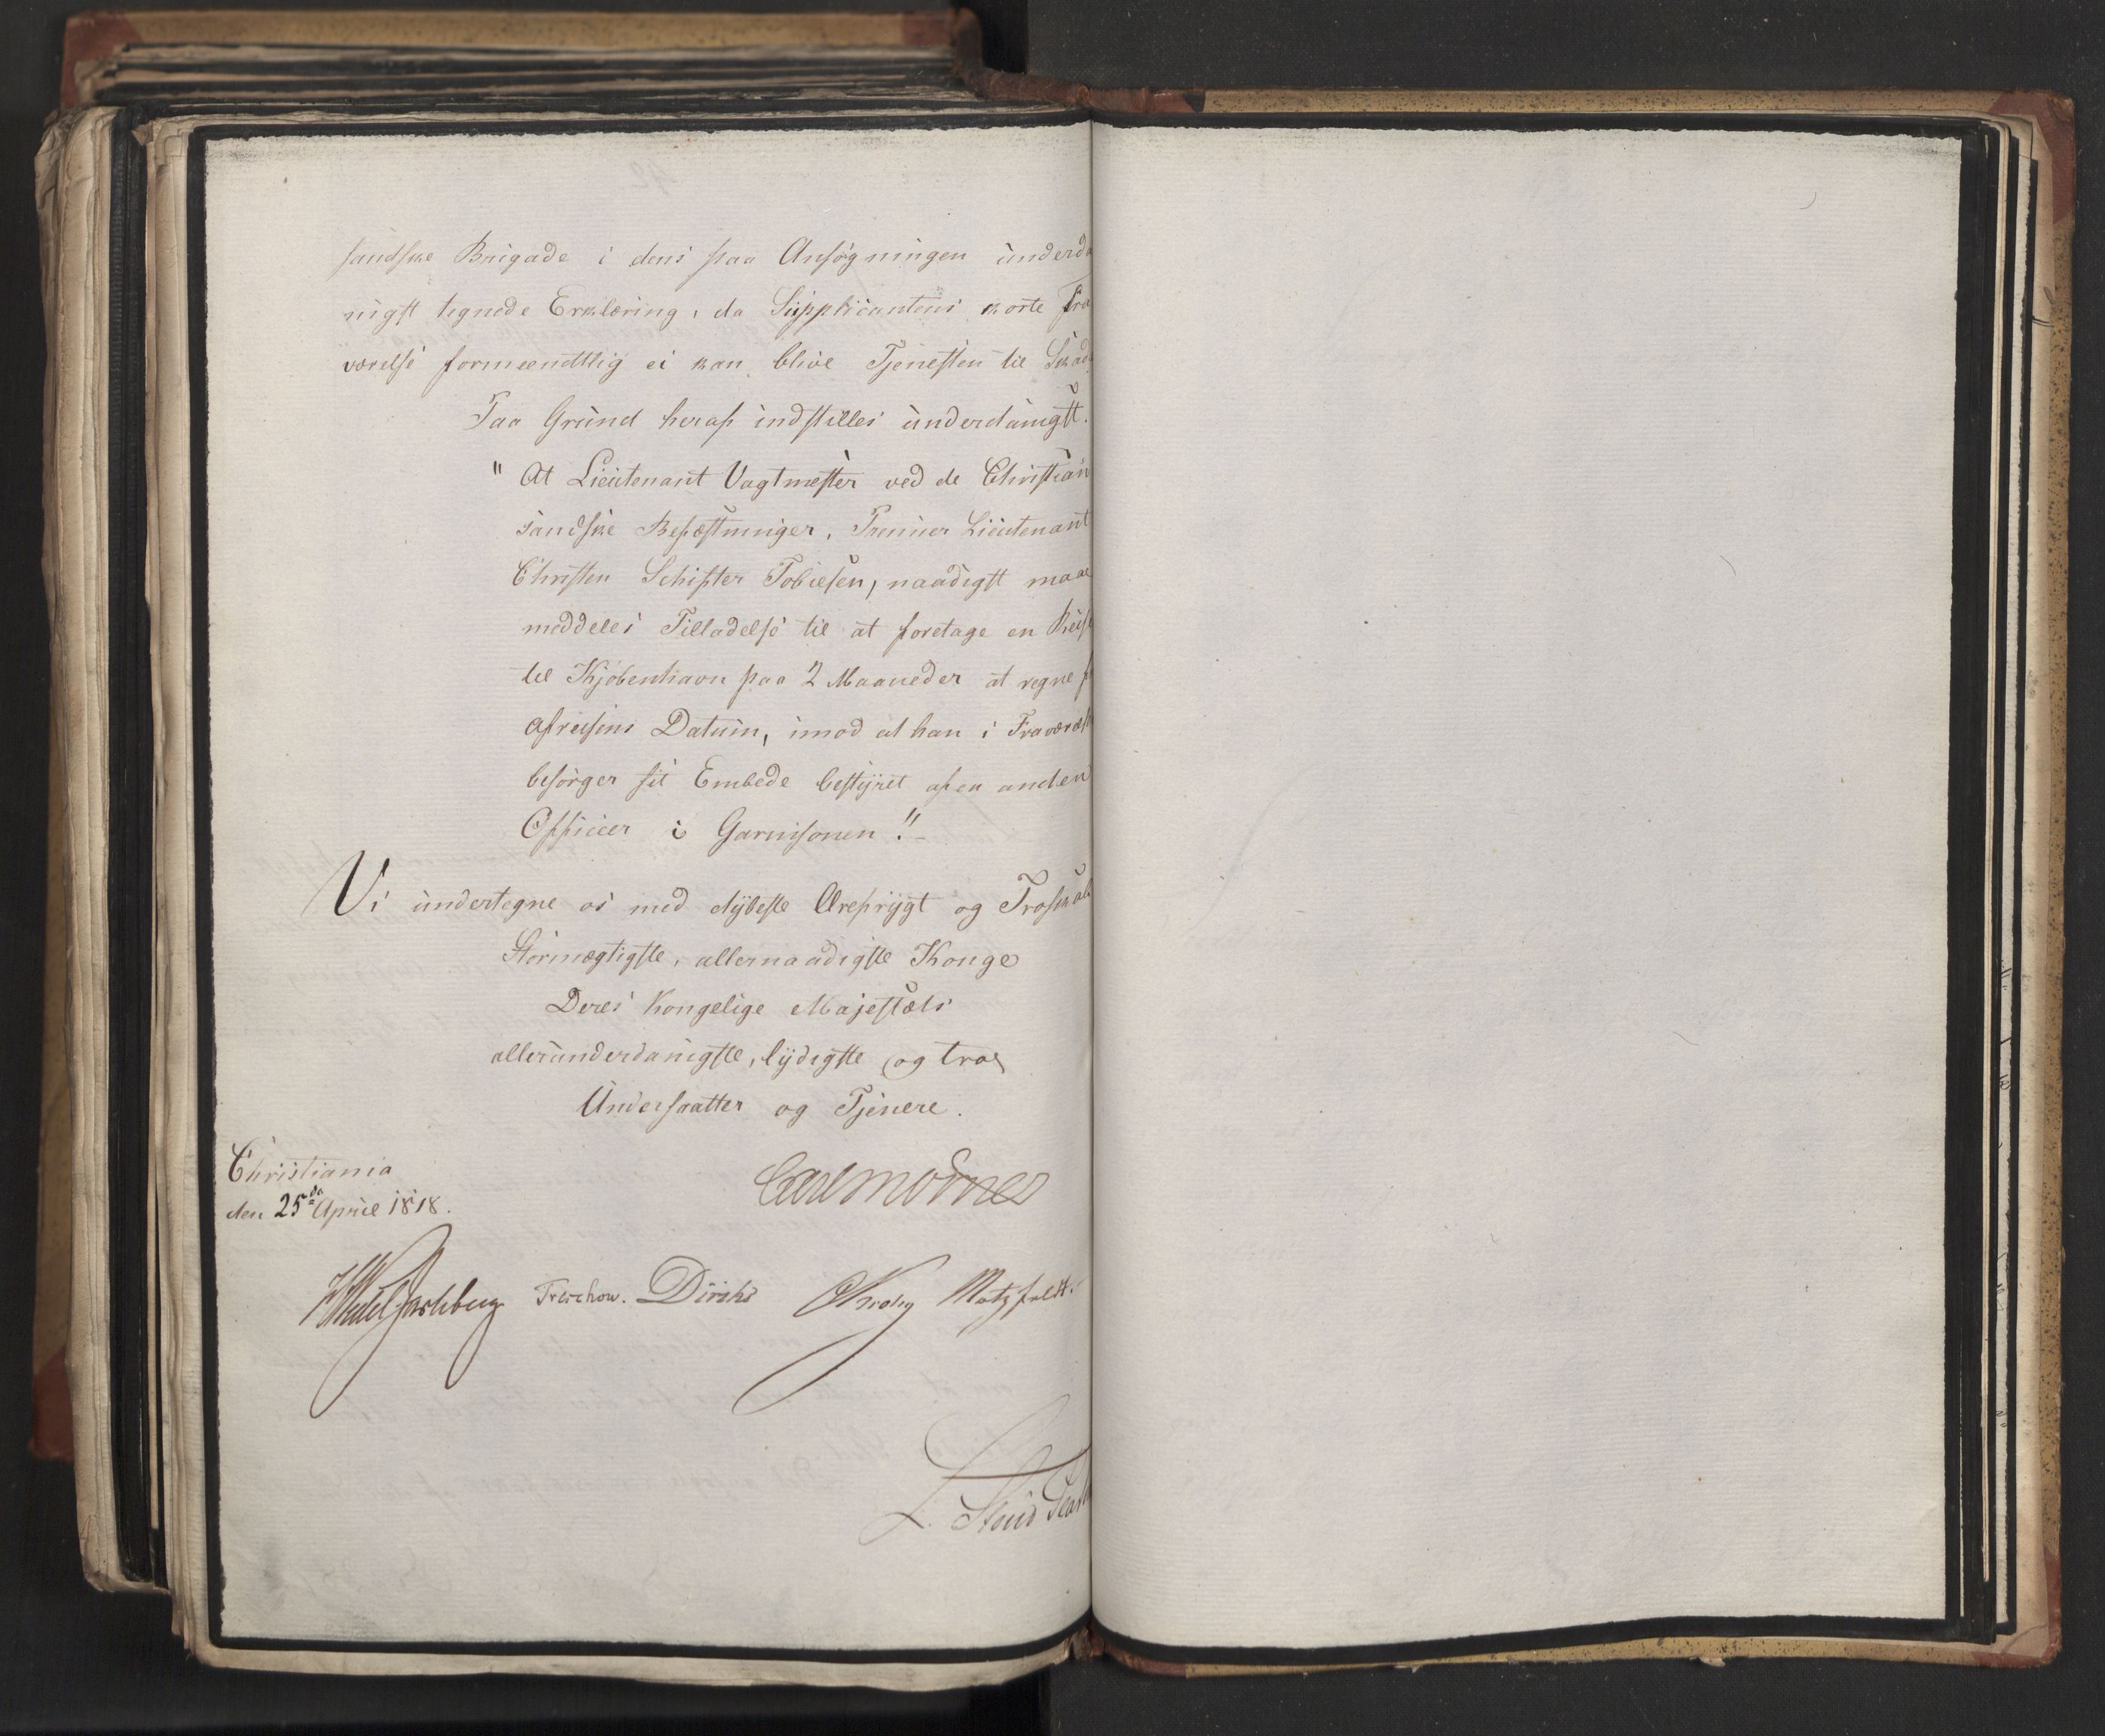 sandske Brigade i dens paa Ansøgningen underda
nigst tegnede Erklæring, da Supplicantens korte Fra
værelse formeendtlig ei kan blive Tjenesten til Skad
Paa Grund heraf indstilles underdanigst.
"At Lieutenant Vagtmester ved de Christian
sandske Befæstninger, Premier Lieutenant
Christen Schifter Tobiesen, naadigst maae
meddeles Tilladelse til at foretage en Reise
til Kjöbenhavn paa 2 Maaneder at regne f
Afreisens Datum, imod at han i Fraværelse
besörger sit Embede bestyret af en anden
Officier i Garnisonen"!
Vi undertegne os med dybeste Ærefrygt og Troskab
Stormægtigste, allernaadigste Konge
Deres Kongelige Majestæts
allerunderdanigste, lydigste og troe
Undersaatter og Tjenere.
Christiania
den 25de April 1818.
Carl Mörner
HWedel Jarlsberg Treschow. Diriks CKrohg Motzfeldt.
L.